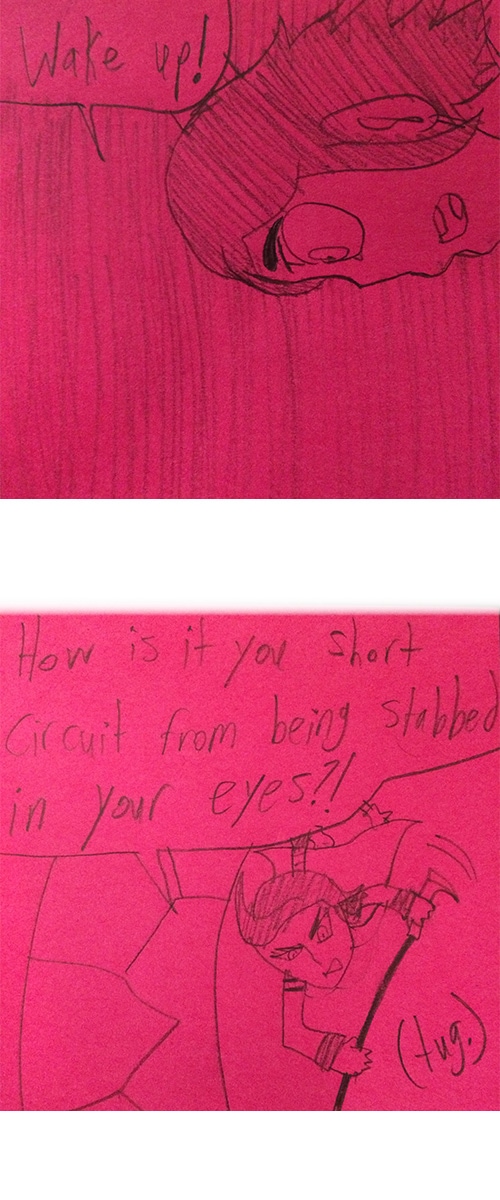 Wake up!
How is it you short
circuit from being stabbed
in your eyes?!
(tug.)